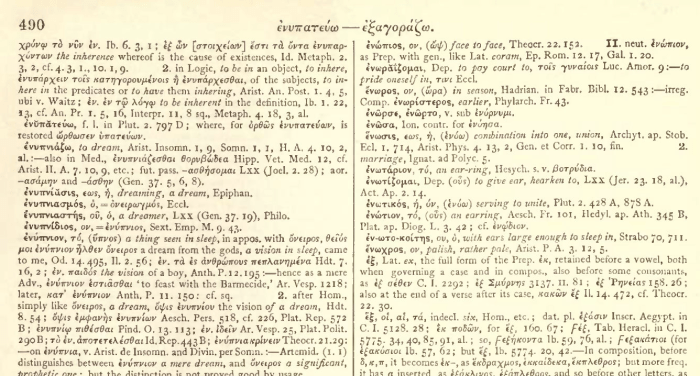 490
ἐνυπατεύω — ἐξαγοράζω.
χρόνῳ τὸ νῦν ἐν. Ib. 6. 3, 1; ἐξ ὧν [στοιχείων] ἐστι τὰ ὄντα ἐνυπαρ-
χόντων the inherence whereof is the cause of existences, Id. Metaph. 2.
3, 2, cf. 4. 3, 1., 10. 1, 9. 2. in Logic, to be in an object, to inhere,
ἐνυπάρχειν τοῖς κατηγορουμένοις ἢ ἐνυπάρχεσθαι, of the subjects, to in-
here in the predicates or to have them inhering, Arist. An. Post. 1. 4, 5,
ubi v. Waitz; ἐν. ἐν τῷ λόγῳ to be inherent in the definition, Ib. 1. 22,
13, cf. An. Pr. 1. 5, 16, Interpr. 11, 8 sq., Metaph. 4. 18, 3, al.
ἐνυπᾰτεύω, f. l. in Plut. 2. 797 D; where, for ὀρθῶς ἐνυπατεύων, is
restored ὤρθωσεν ὑπατεύων.
ἐνυπνιάζω, to dream, Arist. Insomn. 1, 9, Somn. 1, 1, H. A. 4. 10, 2,
al.:—also in Med., ἐνυπνιάζεσθαι θορυβώδεα Hipp. Vet. Med. 12, cf.
Arist. II. A. 7. 10, 9, etc.; fut. pass. -ασθήσομαι Lxx (Joel. 2. 28); aor.
-ασάμην and -άσθην (Gen. 37. 5, 6, 8).
ἐνυπνίᾰσις, εως, ἡ, dreaming, a dream, Epiphan.
ἐνυπνιασμός, ὁ, = ὀνειρωγμός, Eccl.
ἐνυπνιαστής, οῦ, ὁ, a dreamer, Lxx (Gen. 37. 19), Philo.
ἐνυπνίδιος, ον, = ἐνύπνιος, Sext. Emp. M. 9. 43.
ἐνύπνιον, τό, (ὕπνος) a thing seen in sleep, in appos. with ὄνειρος, θεῖός
μοι ἐνύπνιον ἦλθεν ὄνειρος a dream from the gods, a vision in sleep, came
to me, Od. 14. 495, Il. 2. 56; ἐν. τὰ ἐς ἀνθρώπους πεπλανημένα Hdt. 7.
16, 2; ἐν. παιδὸς the vision of a boy, Anth. P. 12. 195:—hence as a mere
Adv., ἐνύπνιον ἑστιᾶσθαι 'to feast with the Barmecide,' Ar. Vesp. 1218;
later, κατ' ἐνύπνιον Anth. P. 11. 150: cf. sq. 2. after Hom.,
simply like ὄνειρος, a dream, ὄψις ἐνυπνίου the vision of a dream, Hdt.
8. 54; ὄψις ἐμφανὴς ἐνυπνίων Aesch. Pers. 518, cf. 226, Plat. Rep. 572
B; ἐνυπνίῳ πιθέσθαι Pind. O. 13. 113; ἐν. ἰδεῖν Ar. Vesp. 25, Plat. Polit.
290 B; τὸ ἐν. ἀποτετελέσθαι Id. Rep. 443 B; ἐνύπνια κρίνειν Theocr. 21. 29:
—on ἐνύπνια, v. Arist. de Insomn. and Divin. per Somn.:—Artemid. (1. 1)
distinguishes between ἐνύπνιον a mere dream, and ὄνειρος a significant,
prophetic one; but the distinction is not proved good by usage.
ἐνώπιος, ον, (ὤψ) face to face, Theocr. 22. 152. II. neut. ἐνώπιον,
as Prep. with gen., like Lat. coram, Ep. Rom. 12. 17, Gal. 1. 20.
ἐνωραΐζομαι, Dep. to pay court to, τοῖς γυναίοις Luc. Amor. 9:—to
pride oneself in, τινι Eccl.
ἔνωρος, ον, (ὥρα) in season, Hadrian. in Fabr. Bibl. 12. 543:—irreg.
Comp. ἐνωρίστερος, earlier, Phylarch. Fr. 43.
ἐνῶρσε, ἐνῶρτο, v. sub ἐνόρνυμι.
ἐνῶσα, Ion. contr. for ἐνόησα.
ἕνωσις, εως, ἡ, (ἑνόω) combination into one, union, Archyt. ap. Stob.
Ecl. 1. 714, Arist. Phys. 4. 13, 2, Gen. et Corr. 1. 10, fin. 2.
marriage, Ignat. ad Polyc. 5.
ἐνωτάριον, τό, an ear-ring, Hesych. s. v. βοτρύδια.
ἐνωτίζομαι, Dep. (οὖς) to give ear, hearken to, Lxx (Jer. 23. 18, al.),
Act. Ap. 2. 14.
ἑνωτικός, ή, όν, (ἑνόω) serving to unite, Plut. 2. 428 A, 878 A.
ἐνώτιον, τό, (οὖς) an earring, Aesch. Fr. 101, Hedyl. ap. Ath. 345 B,
Plat. ap. Diog. L. 3. 42; cf. ἐνῴδιον.
ἐν-ωτο-κοίτης, ου, ὁ, with ears large enough to sleep in, Strabo 70, 711.
ἔνωχρος, ον, palish, rather pale, Arist. P. A. 3. 12, 5.
ἐξ, Lat. ex, the full form of the Prep. ἐκ, retained before a vowel, both
when governing a case and in compos., also before some consonants,
as ἐξ σέθεν C. I. 2292; ἐξ Σμύρνης 3137. II. 81; ἐξ Ῥηνείας 158. 26;
also at the end of a verse after its case, κακῶν ἔξ Il. 14. 472, cf. Theocr.
22. 30.
ἕξ, οἱ, αἱ, τά, indecl. six, Hom., etc.; dat. pl. ἕξσιν Inscr. Aegypt. in
C. I. 5128. 28; ἐκ ποδῶν, for ἕξ, 160. 67; ϝέξ, Tab. Heracl. in C. I.
5775. 34, 40, 85, 91, al.; so, ϝεξήκοντα Ib. 59, 76, al.; ϝεξακάτιοι (for
ἑξακόσιοι Ib. 57, 62; but ἕξ, Ib. 5774. 20, 42.—In composition, before
δ, κ, π, it becomes ἑκ-, as ἕκδραχμος, ἑκκαίδεκα, ἕκπλεθρος; but more freq.